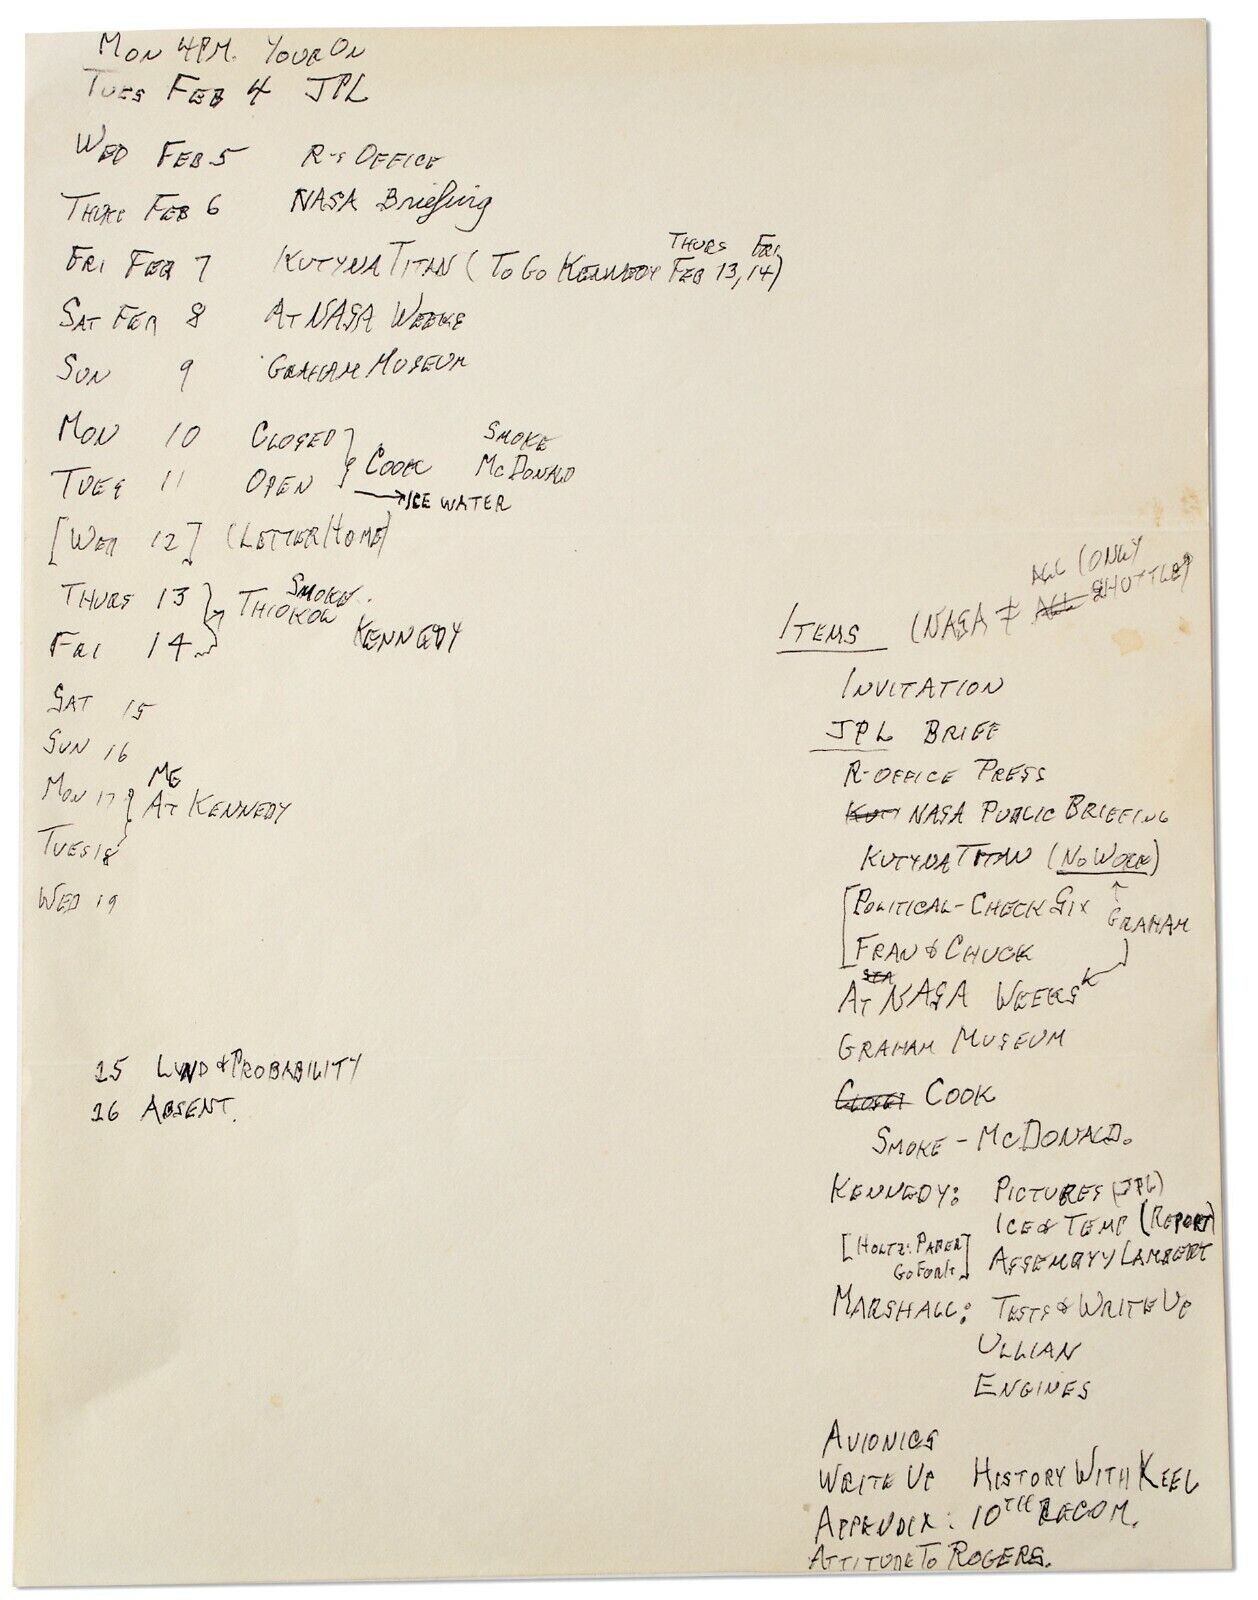 MON 4PM. YOUR ON
TUES FEB 4 JPL
WED FEB 5 R-S OFFICE
THURS FEB 6 NASA Briefing
FRI FEB 7 KUTYNA TITAN (TO GO KENNEDY THURS FEB 13, FRI 14)
SAT FEB 8 AT NASA WEEKS
SUN 9 GRAHAM MUSEUM
MON 10 CLOSED
TUES 11 OPEN } COOK
SMOKE
MCDONALD
→ ICE WATER
[WED 12] (LETTER HOME)
THURS 13
FRI 14 } THIOKOL SMOKE.
KENNEDY
SAT 15
SUN 16
MON 17
TUES 18 } ME AT KENNEDY
WED 19
25 LUND & PROBABILITY
26 ABSENT.
ITEMS (NASA ≠ ALL ALL (ONLY SHUTTLE)
INVITATION
JPL BRIEF
R-OFFICE PRESS
KUTY NASA PUBLIC BRIEFING
KUTYNA TITAN (NO WORK)
[POLITICAL - CHECK SIX ↑ GRAHAM
FRAN & CHUCK
AT NASA WEEKS
GRAHAM MUSEUM
CLOSET COOK
SMOKE - MCDONALD.
KENNEDY: PICTURES (JPL)
ICE & TEMP (REPORT)
[HOLTZ: PAPER GO FOR IT] ASSEMBYY LAMBERT
MARSHALL: TESTS & WRITE UP
ULLIAN
ENGINES
AVIONICS
WRITE UP HISTORY WITH KEEL
APPENDIX: 10TH RECOM.
ATTITUDE TO ROGERS.